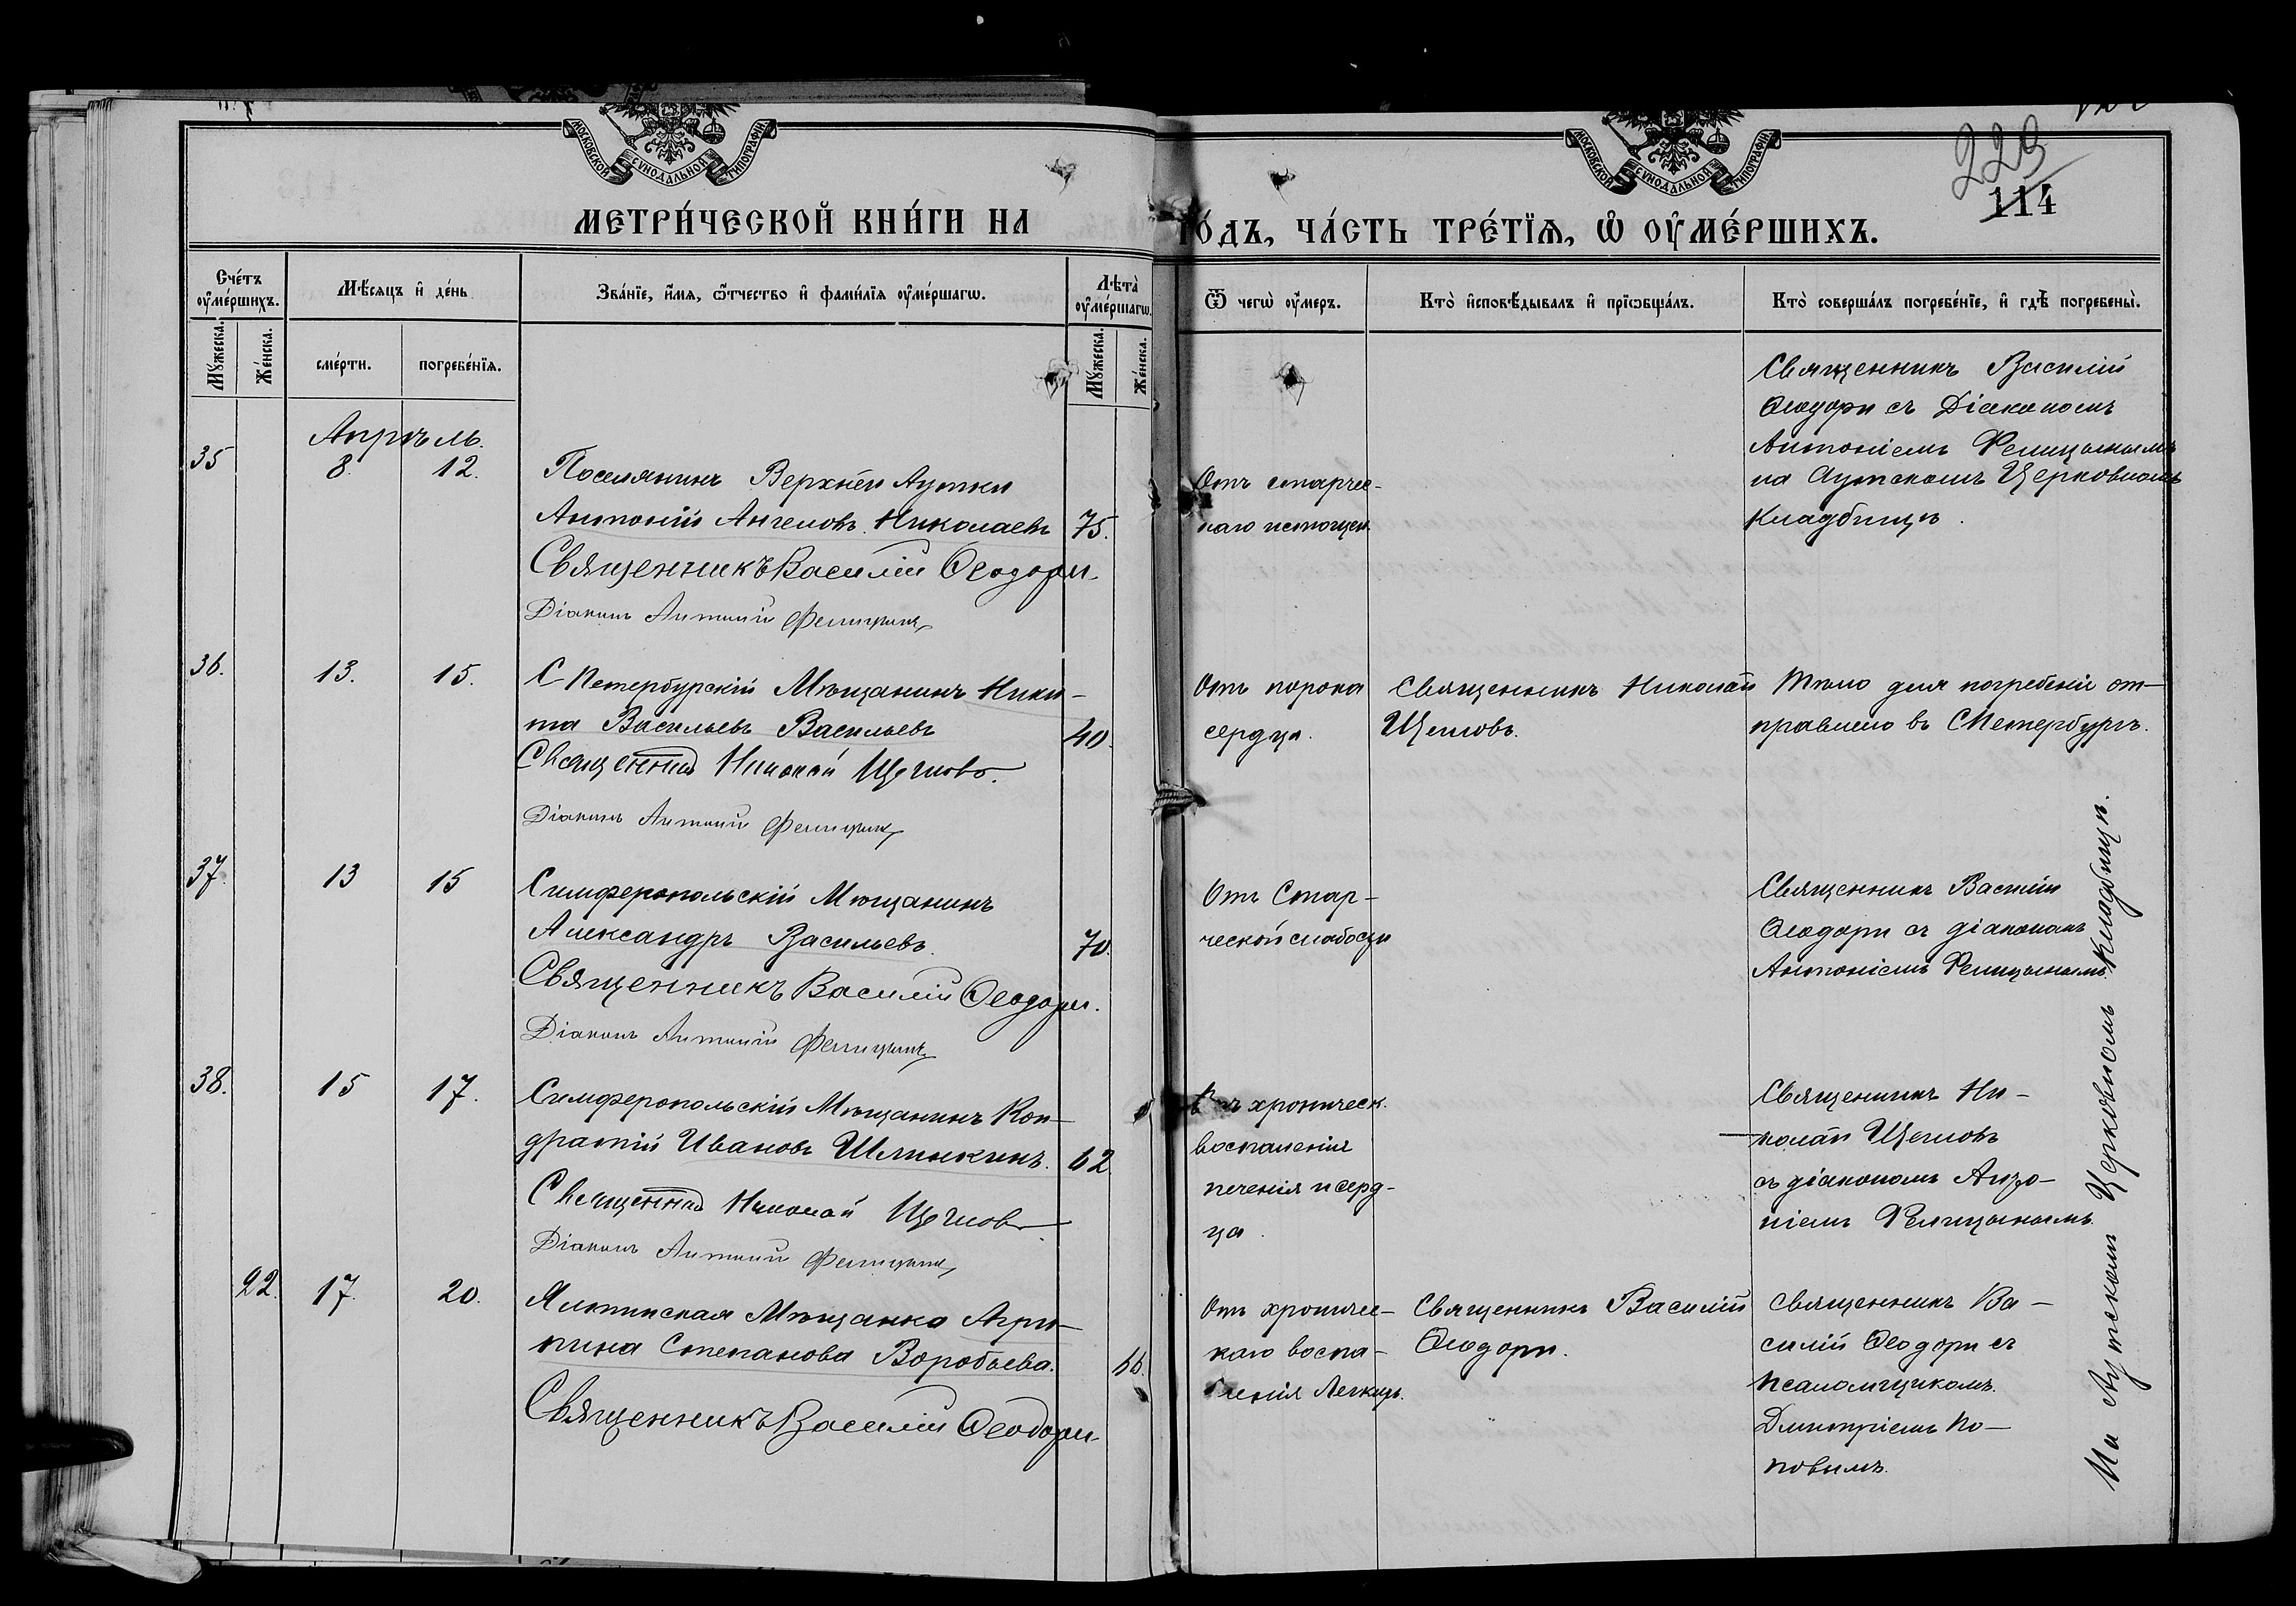 МОСКОВСКОЙ СѴНОДАЛЬНОЙ ТИПОГРАФІИ
МОСКОВСКОЙ СѴНОДАЛЬНОЙ ТИПОГРАФІИ
229
114
МЕТРИ́ЧЕСКОЙ КНИ́ГИ НА
ГО́ДЪ, ЧА́СТЬ ТРЕ́ТІѦ, Ѡ ОУМЕ́РШИХЪ.
Сче́тъ оуме́ршихъ.
Мѣ́сяцъ и де́нь
Зва́нїе, и́мѧ, ѿтчество и фами́лїѧ оуме́ршагѡ.
Лѣта̀ оуме́ршагѡ.
Ѿ чегѡ̀ оу́меръ.
Кто̀ исповѣ́дывалъ и прїѡбща́лъ.
Кто̀ соверша́лъ погребе́нїе, и гдѣ̀ погребены̀.
Мꙋжеска.
Же́нска.
сме́рти.
погребе́нїѧ.
Мꙋжеска.
Же́нска.
Апрѣль.
35
8.
12.
Поселянинъ Верхней Аутки
Антоній Ангеловъ Николаевъ
75.
Священникъ Василій Ѳеодори
Діаконъ Антоній Фелицынъ
Отъ старчес-
каго истощен.
Священникъ Василій
Ѳеодори съ Діакономъ
Антоніемъ Фелицынымъ
на Аутскомъ Церковномъ
Кладбищѣ.
36.
13.
15.
С Петербурскій Мѣщанинъ Ники-
та Васильевъ Васильевъ
40.
Священникъ Николай Щегловъ.
Діаконъ Антоній Фелицынъ
Отъ порока
сердца.
Священникъ Николай
Щегловъ.
Тѣло для погребенія от-
правлено въ СПетербургъ.
37.
13
15
Симферопольскій Мѣщанинъ
Александръ Васильевъ.
70.
Священникъ Василій Ѳеодори.
Діаконъ Антоній Фелицынъ
Отъ Стар-
ческой слабости
Священникъ Василій
Ѳеодори съ діакономъ
Антоніемъ Фелицынымъ.
38.
15
17.
Симферопольскій Мѣщанинъ Кон-
дратій Ивановъ Шлинкинъ.
62
Священникъ Николай Щегловъ
Діаконъ Антоній Фелицынъ
хроническ.
воспаленія
печенія и серд-
ца.
Священникъ Ни-
колай Щегловъ
съ діакономъ Анто-
ніемъ Фелицынымъ.
22.
17.
20.
Ялтинская Мѣщанка Агри-
пина Степанова Воробьева.
66.
Священникъ Василій Ѳеодори
Отъ хроничес-
каго воспа-
ленія Легкихъ.
Священникъ Василій
Ѳеодори.
Священникъ Ва-
силій Ѳеодори съ
псаломщикомъ
Дмитріемъ По-
повымъ.
На Аутскомъ Церковномъ Кладбищѣ.